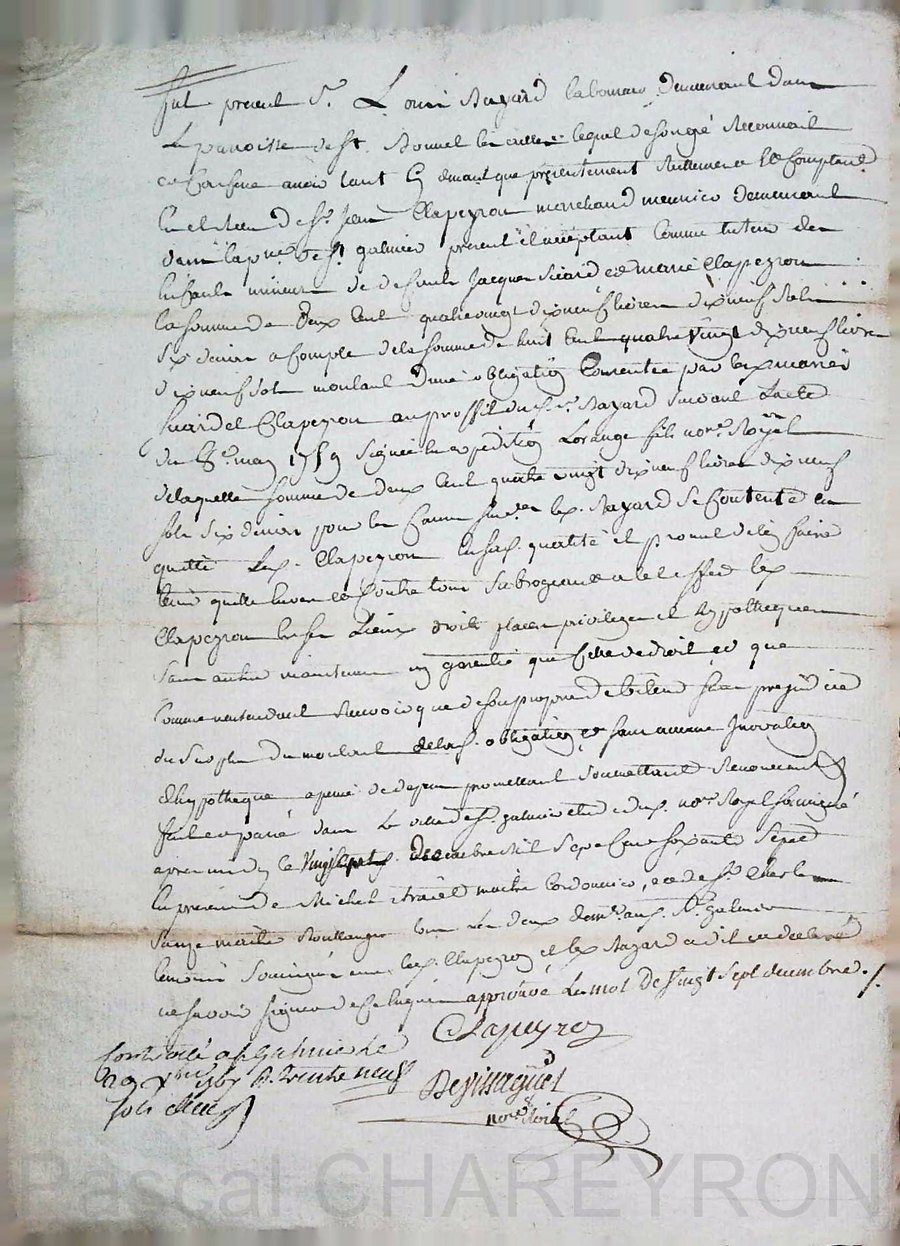 fut present Sr. Louis Bayard laboureur demeurant dans
la paroisse de St. Bonnet les oulles lequel de son gré reconnait
et confesse avoir tant cy devant que presentement reellement et comptant
du Sr. Jean Clapeyron marchand meunier demeurant
dans la psse de St. galmier present et acceptant comme tuteur des
enfants mineurs de defunts Jacques Sicard et de marie Clapeyron
la somme de deux cent quatre vingt dix neuf livres dix neuf sols
six deniers a compte de la somme de huit cent quatre vingt dix neuf livres
dix neuf sols montant d'une obligation consentie par les mariés
Sicard et Clapeyron au proffit du d. Sr. Bayard suivant l'acte
du 8e. may 1759 signé en expedition Lorange fils nore. Royal
de laquelle somme de deux cent quatre vingt dix neuf livres dix neuf
sols six deniers pour les causes led. Bayard se contente en
quitte led. Clapeyron en sad. qualité et promet de l'en faire
tenir quitte envers et contre tous subrogeant a cet effet led.
Clapeyron en ses lieux droits places privileges et hypotheques
sans autre maintenue ny garentie que celle de droit et que
comme n'entendant recevoir que de son propre debiteur sans prejudice
du surplus du montant de lad. obligation et sans aucune Inovation
d'hypotheque a peine de depens promettant soumettant renonceant
fait et passé dans la ville de St. galmier etude du d. nore. Royal soussigné
apres midy le vingt sept decembre mil sept cent soixante sept
en presence de Michel maitre cordonnier, et de Sr. Charles
maitre Boullanger tous les deux demts. aud. St. galmier
temoins soussignés avec led. Clapeyron et led. Bayard a dit et declaré
ne savoir signer de ce enquis approuvé le mot de vingt sept decembre ./.
Clapeyron
Controllé a St. Galmier le
29 xbre 1767 R. trente neuf
sols
Depissaguet
nore. Roial
Pascal CHAREYRON